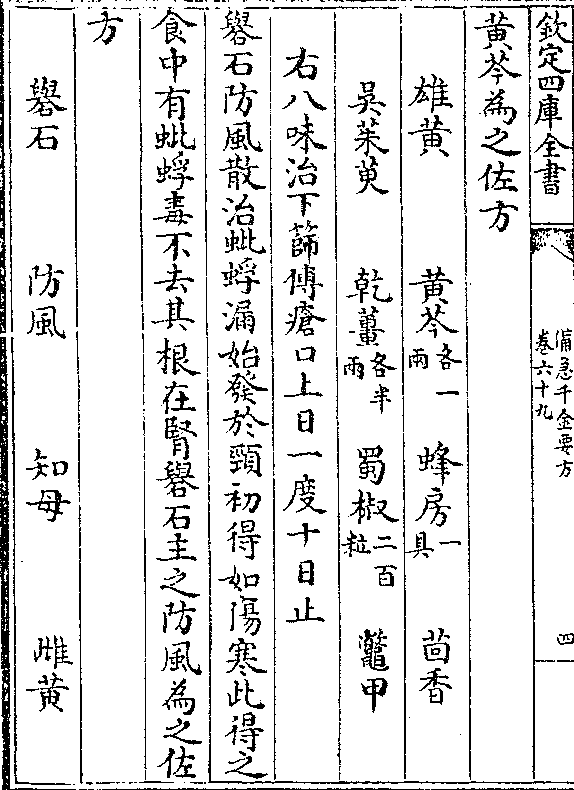 欽定四庫全書
備急千金要方
卷六十九
四
黃芩為之佐方
雄黃 黃芩各一兩 蜂房一具 茴香
吳茱萸 乾薑各半兩 蜀椒二百粒 鼈甲
右八味治下篩傅瘡口上日一度十日止
礜石防風散治蚍蜉漏始發於頸初得如傷寒此得之
食中有蚍蜉毒不去其根在腎礜石主之防風為之佐
方
礜石 防風 知母 雌黃